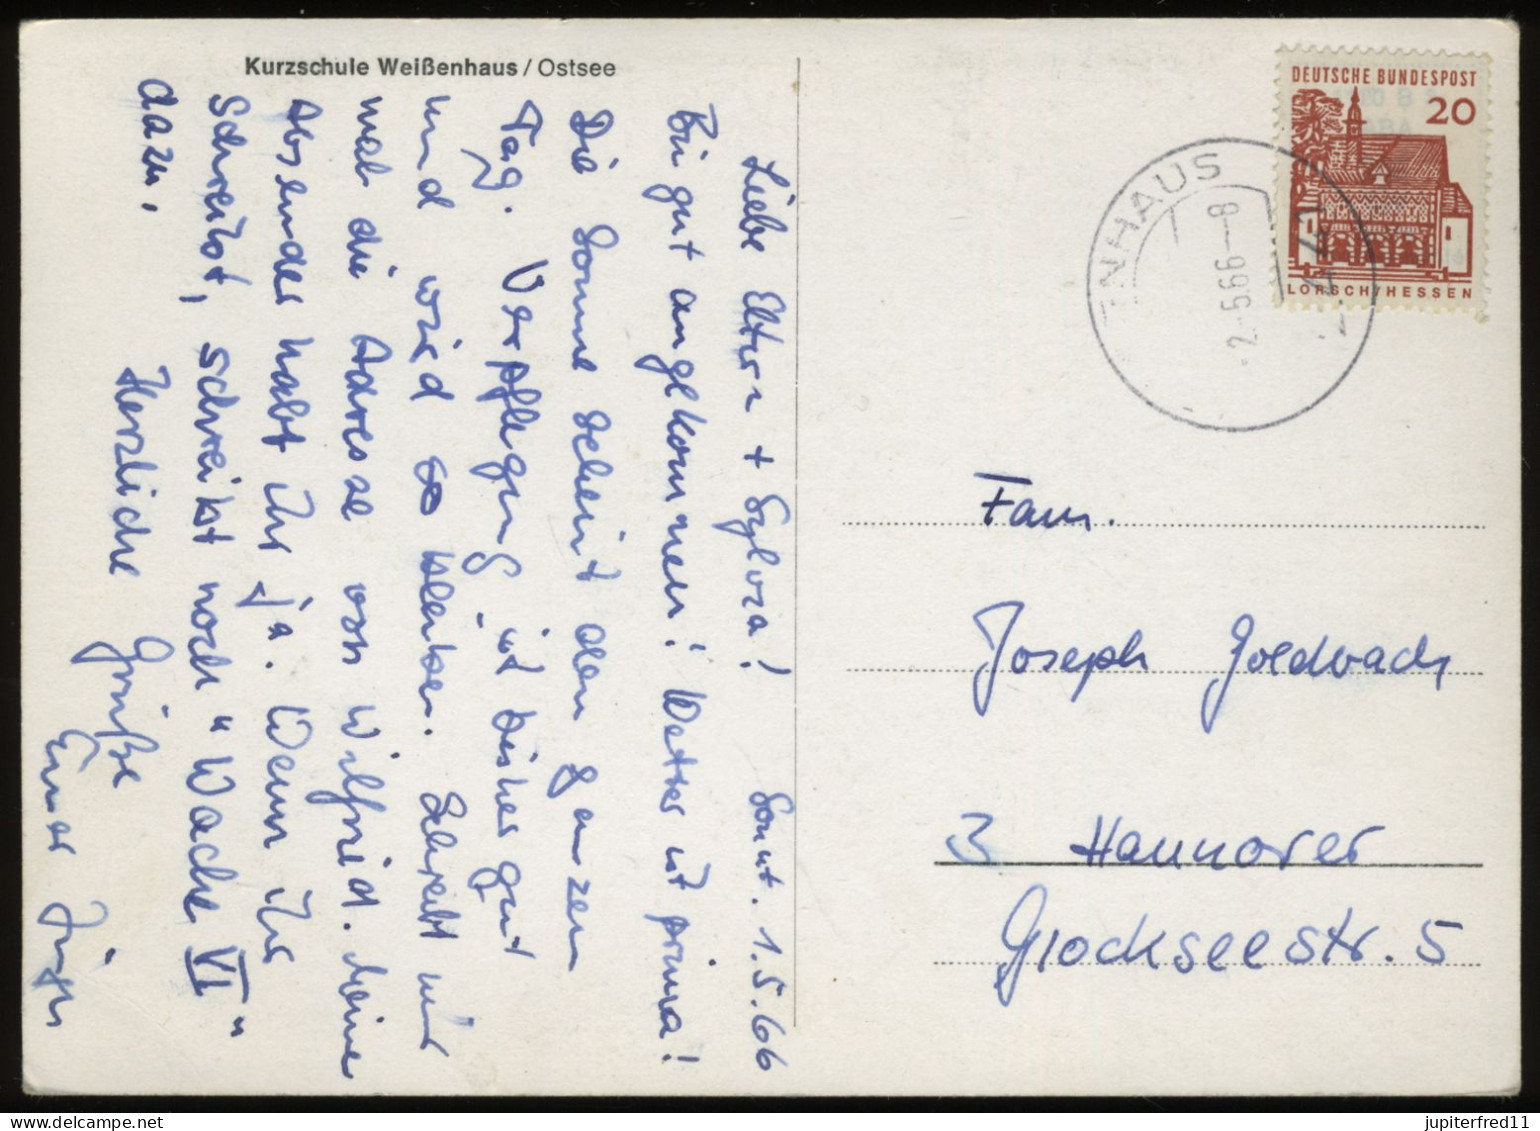 Kurzschule Weißenhaus / Ostsee
Sonnt. 1.5.66
Liebe Eltern + Sylvia!
Bin gut angekommen! Wetter ist prima!
Die Sonne scheint den ganzen
Tag. Verpflegung ist bisher gut
und wird es bleiben. Schreibt mir
mal die Adresse von Wilfried. Meine
Absender habt ihr ja. Wenn ihr
schreibt, schreibt noch "Wache VI"
dazu.
Herzliche Grüße
Euer Jürgen
DEUTSCHE BUNDESPOST
20
LORSCH/HESSEN
NHAUS
-2.-5.66-8
Fam.
Joseph Goldbach
3 Hannover
Glockseestr. 5
jupiterfred11